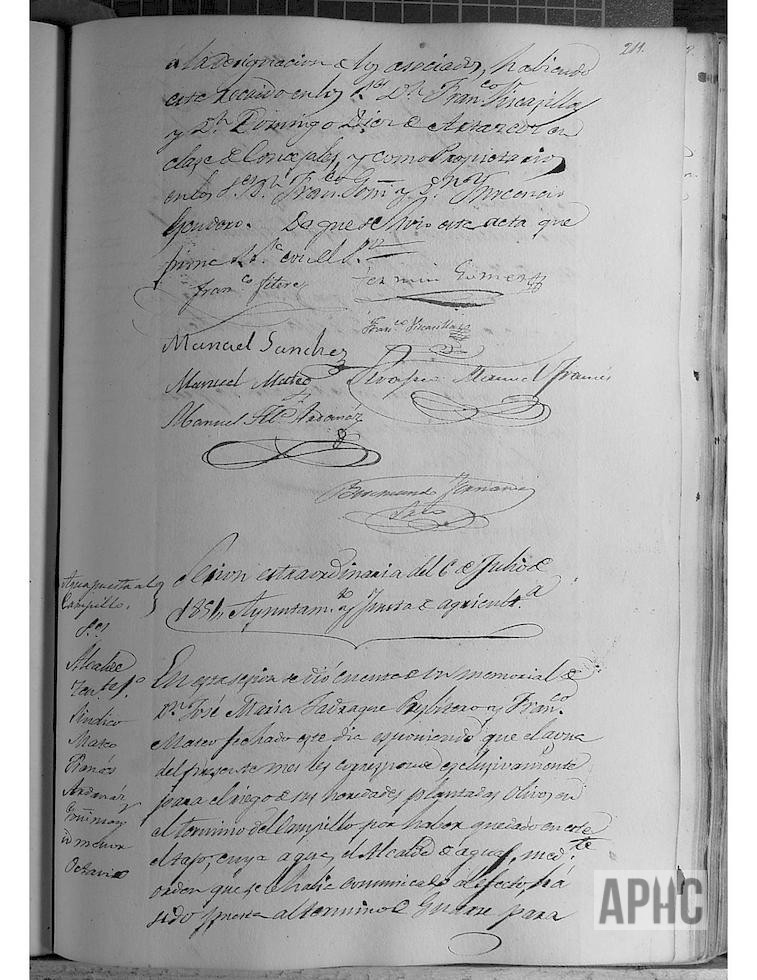 211.
a la designacion de los asociados, habiendo
este recaido en los S.res D.n Fran.co Viscasillas
y D.n Domingo Dior de Artazcoz en
clase de Concejales, y como Propietarios
en los S.res D.n Fran.co y D.n
Escudero. De que se hizo esta acta que
firma S. S.ria con el S.rio
Fran.co
Fermin Gomez
Fran.co Viscasillas
Manuel Sanchez
Manuel Mateo
Manuel Francés
Manuel M.a Ardanaz
Bermundo
Sr.io
Sesion extraordinaria del 6 de Julio de
1851, Ayuntam.to y Junta de agricult.a
puesta al
Campillo.
S.res
Alcalde
Ten.te 1.o
Sindico
Mateo
Francés
Ardanáz
Guimon
id menor
Octavio
En esta sesion se dió cuenta de un memorial de
D.n José Maria Tadraque Presbitero y Fran.co
Mateo fechado este dia esponiendo que el agua
del presente mes les corresponde esclusivamente
para el riego de sus heredades plantadas Olivos en
el termino del Campillo por haber quedado en este
el tajo, cuya agua, el Alcalde de aguas, med.te
orden que se le habia comunicado al efecto, ha
sido puesta al termino de para
APHC